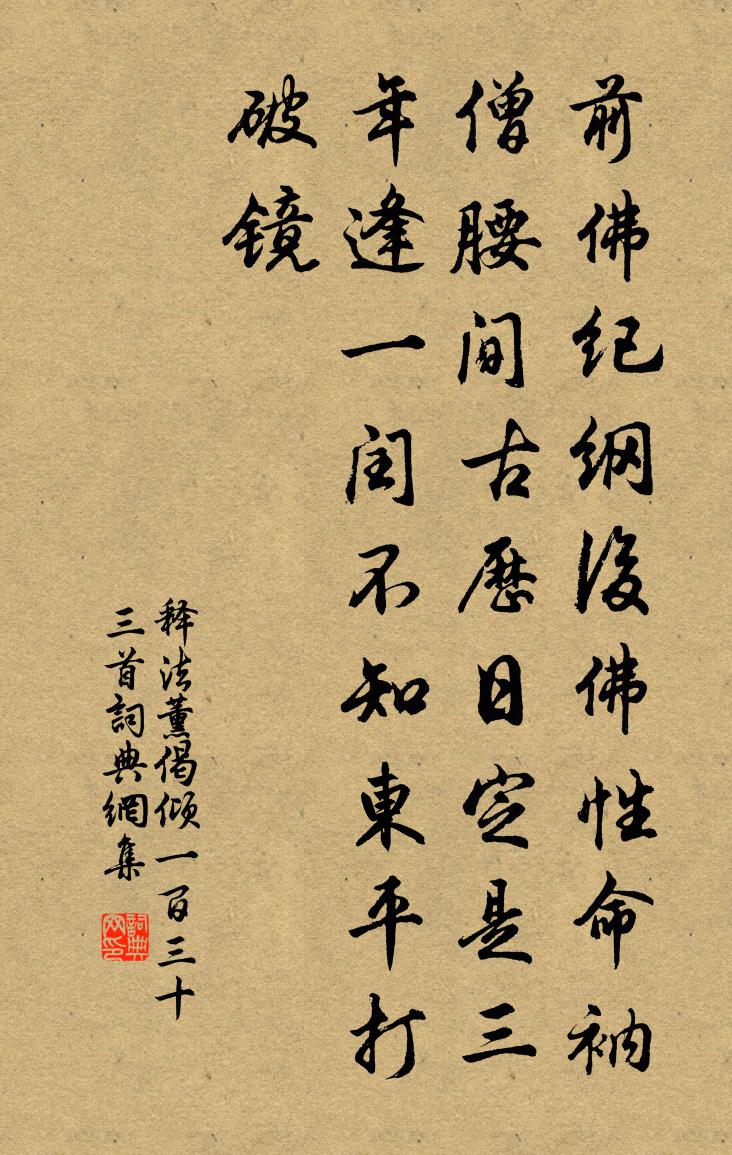 前佛纪纲後佛性命衲
僧腰间古历日定是三
年逢一闰不知東平打
破镜
释法薰偈倾一百三十
三首詞典網集
詞典網印